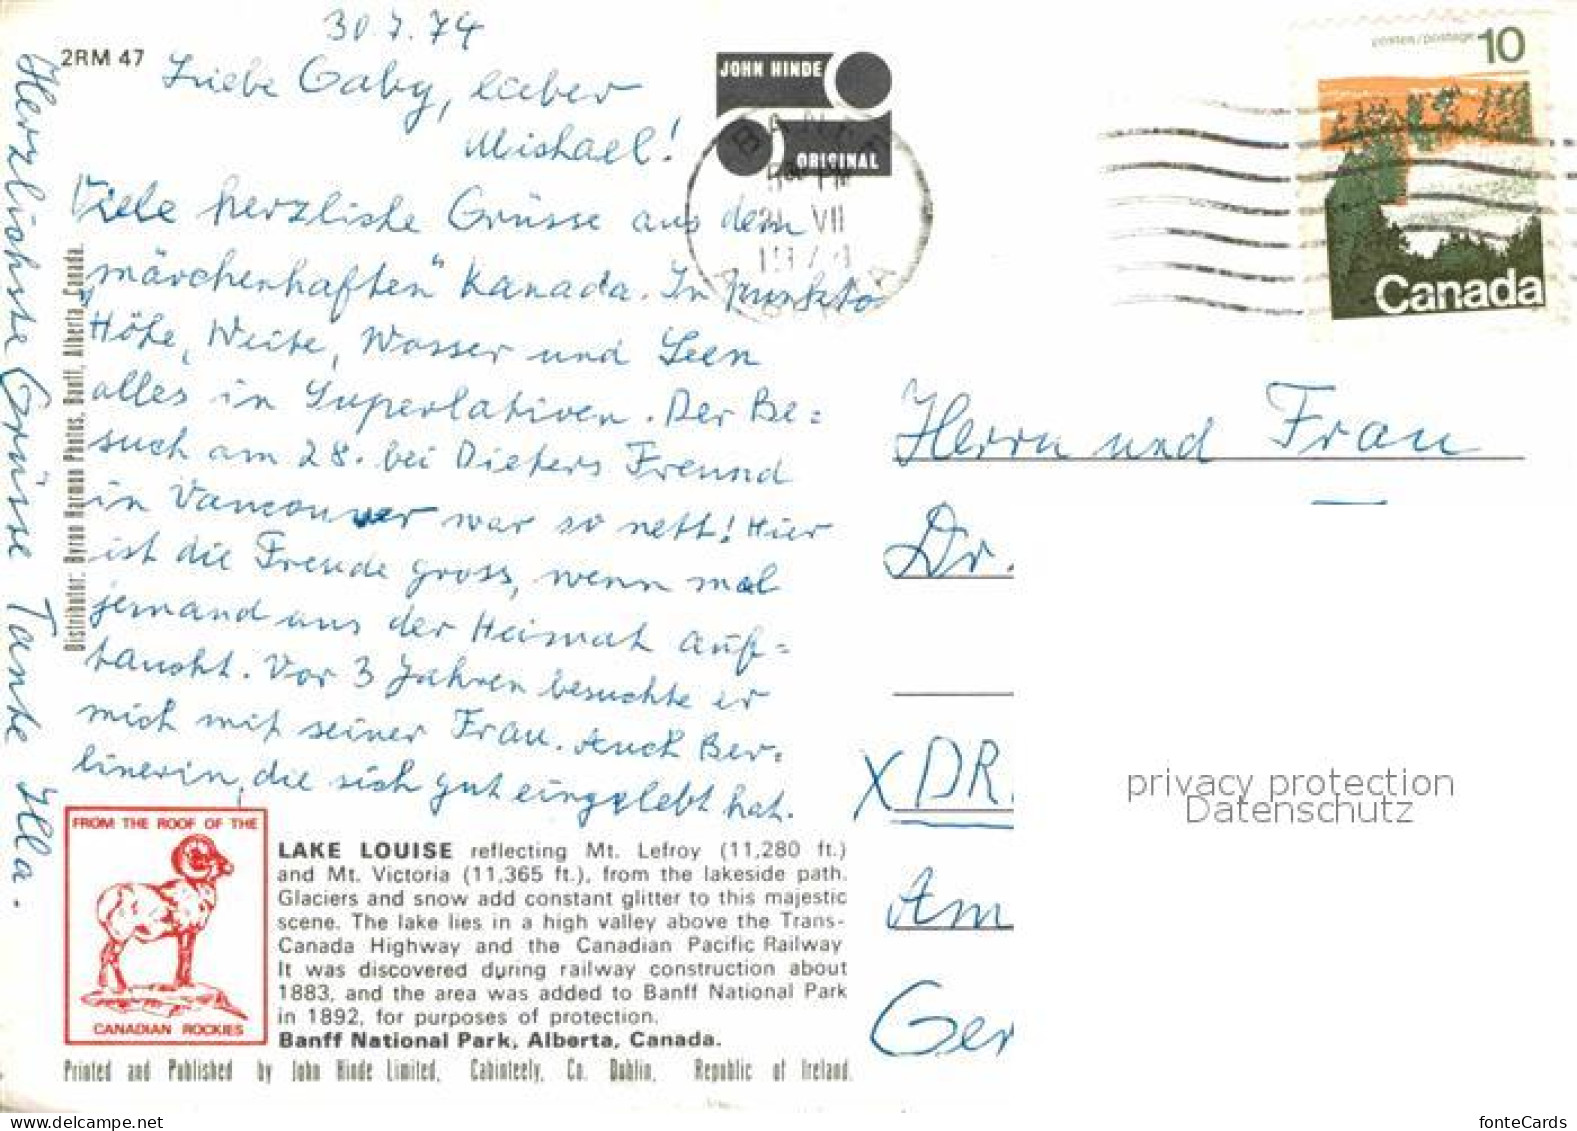 30.7.74
2RM 47
Liebe Gaby, lieber
Michael!
Viele herzliche Grüsse aus dem
"märchenhaften" Kanada. In punkto
Höhe, Weite, Wasser und Seen
alles in Superlativen. Der Be=
such am 28. bei Dieters Freund
in Vancouver war so nett! Hier
ist die Freude gross, wenn mal
jemand aus der Heimat auf=
taucht. Vor 3 Jahren besuchte er
mich mit seiner Frau. Auch Ber=
linerin, die sich gut eingelebt hat.
Herzlichste Grüsse Tante Illa.
Distributor: Byron Harmon Photos, Banff, Alberta, Canada.
JOHN HINDE
ORIGINAL
PM
VII
postes/postage 10
Canada
Herrn und Frau
Dr.
X DR
Am
Ger
privacy protection
Datenschutz
FROM THE ROOF OF THE
CANADIAN ROCKIES
LAKE LOUISE reflecting Mt. Lefroy (11,280 ft.)
and Mt. Victoria (11,365 ft.), from the lakeside path.
Glaciers and snow add constant glitter to this majestic
scene. The lake lies in a high valley above the Trans-
Canada Highway and the Canadian Pacific Railway
It was discovered during railway construction about
1883, and the area was added to Banff National Park
in 1892, for purposes of protection.
Banff National Park, Alberta, Canada.
Printed and Published by John Hinde Limited, Cabinteely, Co. Dublin, Republic of Ireland.
fonteCards